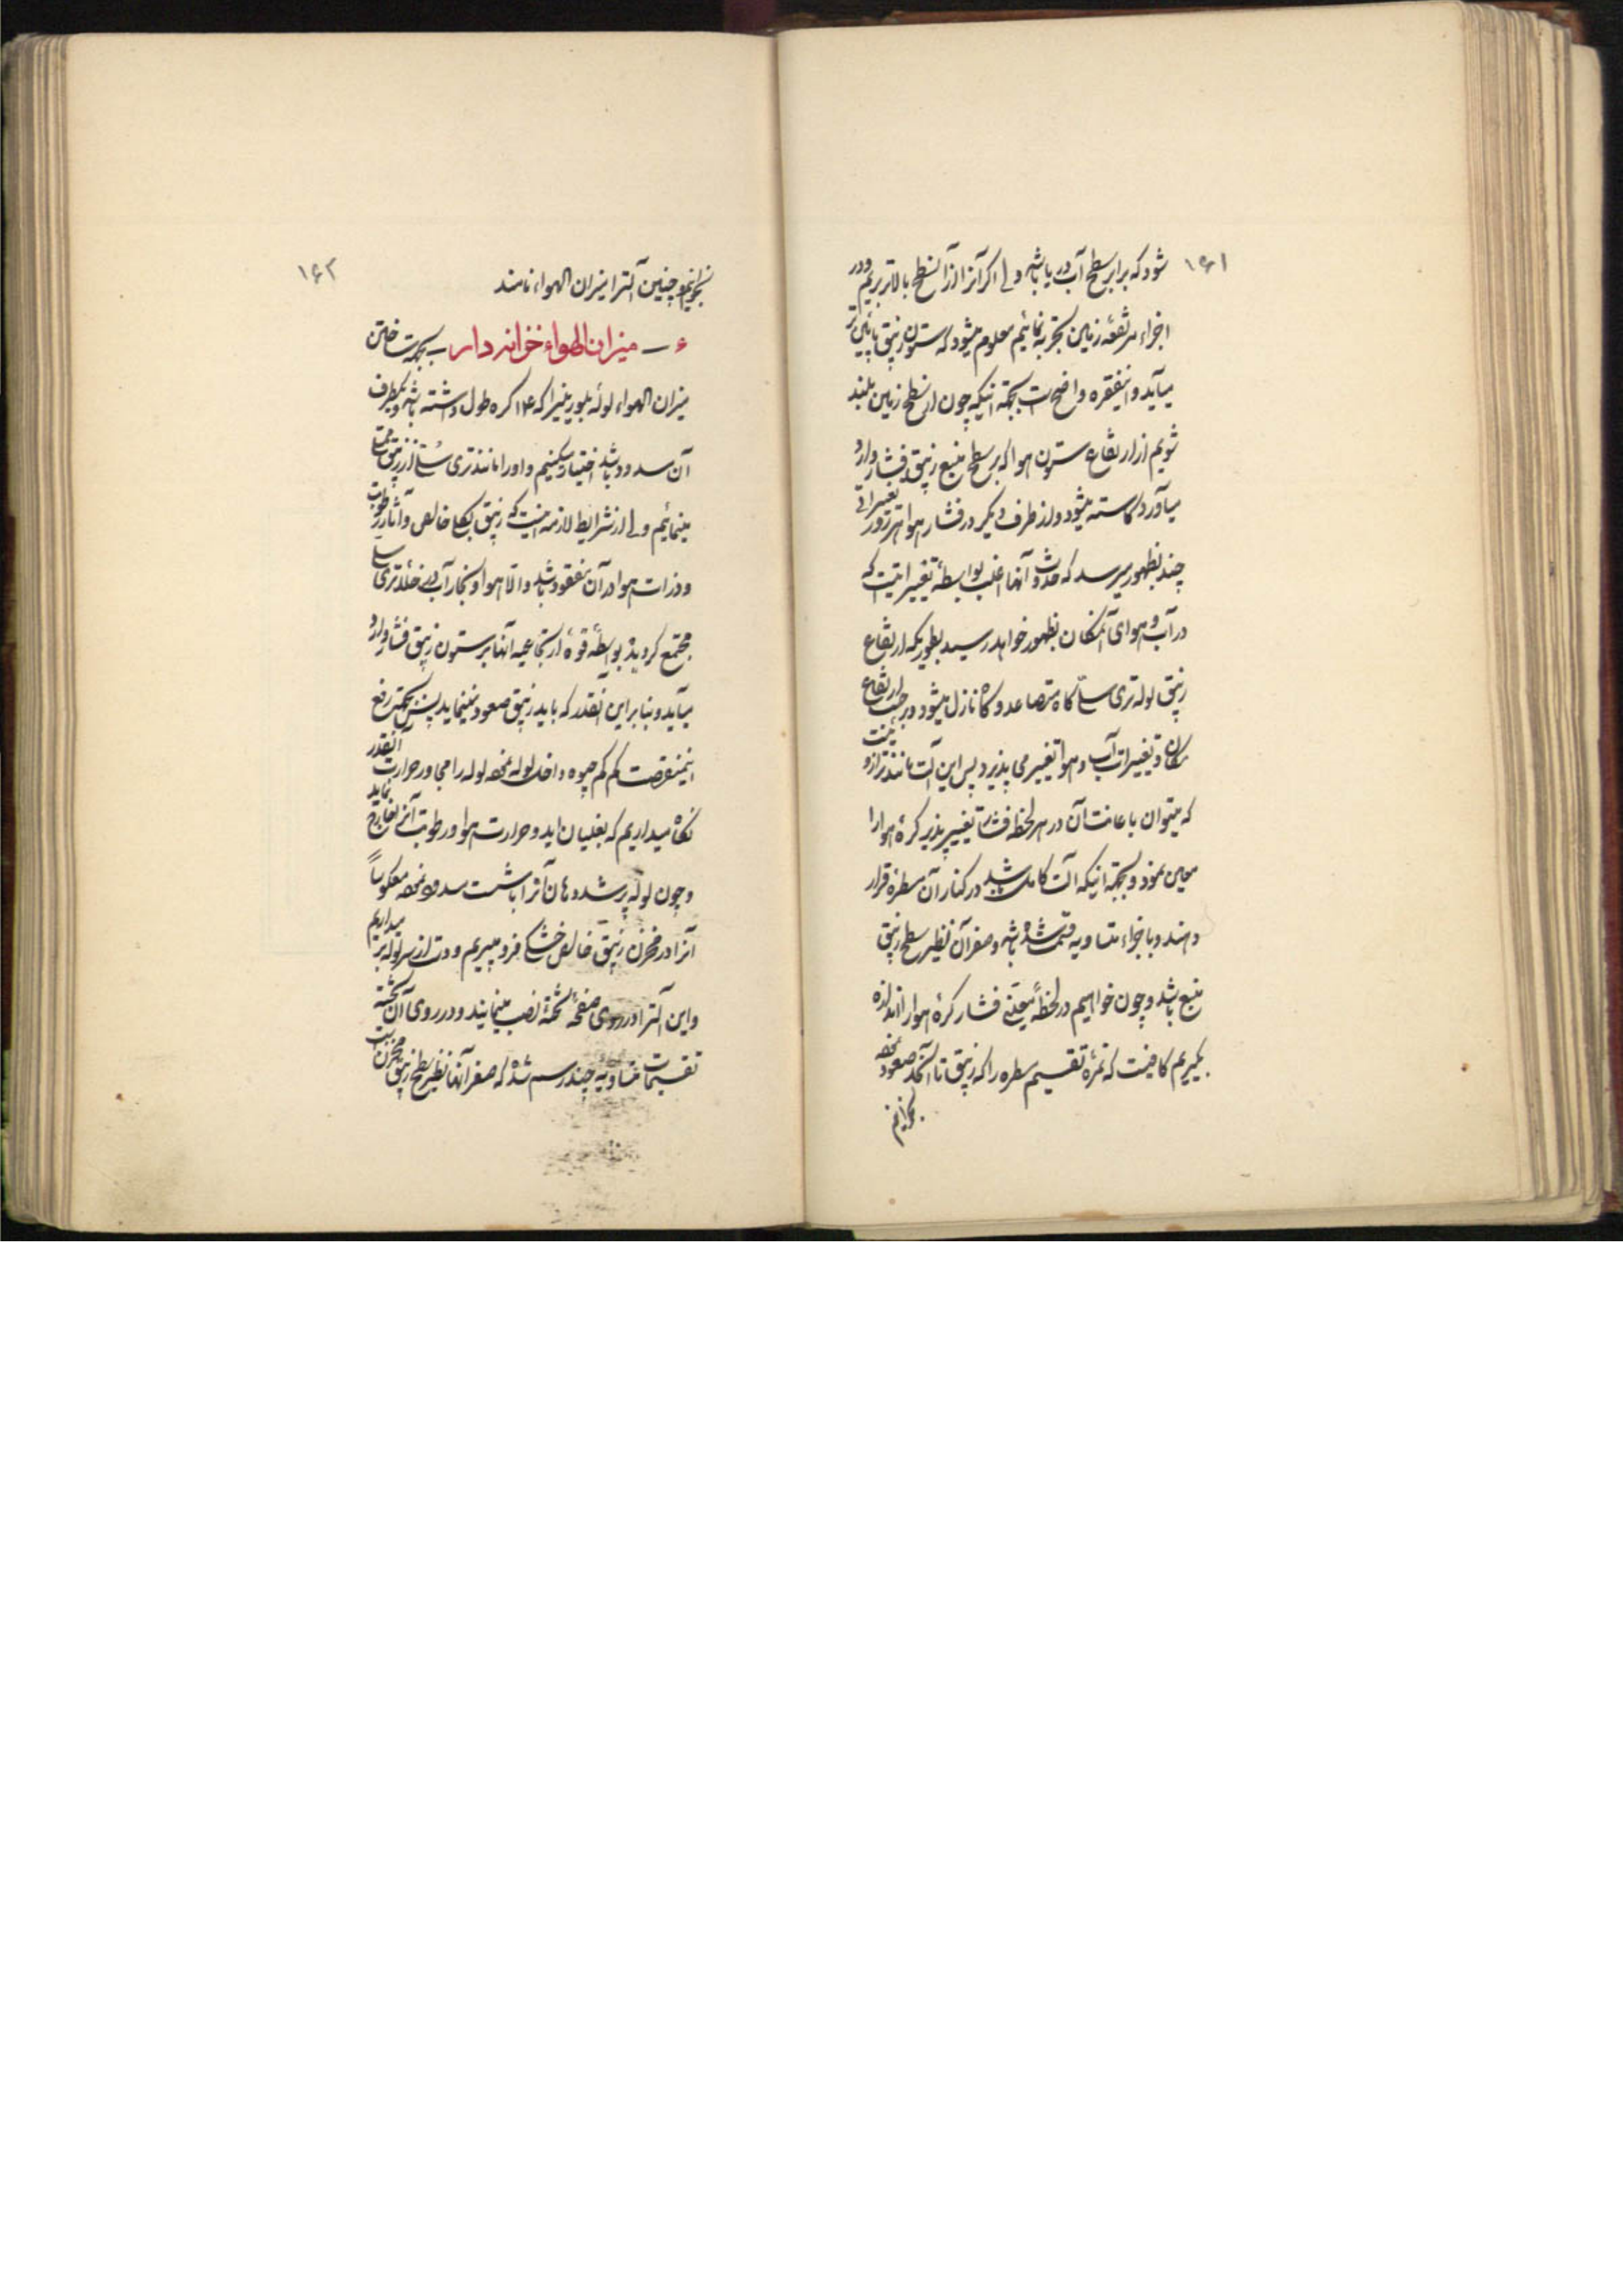 ۱۶۱
شود که برابر سطح آب دریا باشد ولی اکر آنرا از آنسطح بالاتر بریم و در
اجزاء مرتفعه زمین تجربه نمائیم معلوم میشود که ستون زیبق پائین تر
میآید و اینفقره واضح است بجهة اینکه چون از سطح زمین بلند
شویم از ارتفاع ستون هوا که بر سطح منبع زیبق فشار وارد
میآورد کاسته میشود و از طرف دیکر در فشار هوا هر روز تغییراتی
چند بظهور میرسد که حدوث آنها اغلب بواسطهٔ تغییراتیست که
در آب و هوای آنمکان بظهور خواهد رسید بطوریکه ارتفاع
زیبق لوله تری سلی کاه متصاعد و کاه نازل میشود و بر حسب ارتفاع
مکان و تغییرات آب و هوا تغییر می پذیرد پس این آلت مانند ترازو ئیست
که میتوان باعانت آن در هر لحظه فشار تغییر پذیر کرهٔ هوا را
معین نمود و بجهة اینکه آلت کامل باشد در کنار آن مسطره قرار
دهند و باجزاء متساویه قسمت شده باشد و صفر آن نظیر سطح زیبق
منبع باشد و چون خواهیم در لحظهٔ معینی فشار کرهٔ هوا را اندازه
بکیریم کافیست که نمرهٔ تقسیم مسطره را که زیبق تا آنحد صعود نموده
بخوانیم
۱۶۲
بخوانیم و چنین آلت را میزان الهواء نامند
۶ — میزان الهواء خزانه دار — بجهة ساختن
میزان الهواء لولهٔ بلورینیرا که ۱۴ کره طول داشته باشد و یکطرف
آن مسدود باشد اختیار میکنیم و او را مانند تری سلی از زیبق ممتلی
مینمائیم ولی از شرایط لازمه اینست که زیبق بکلی خالص و آثار رطوبت
و ذرات هوا در آن مفقود باشد و الا هوا و بخار آب در خلاء تری سلی
مجتمع کردیده بواسطهٔ قوهٔ ارتجاعیه آنها بر ستون زیبق فشار وارد
میآید و بنابراین آنقدر که باید زیبق صعود نمینماید پس بجهة رفع
این منقصت کم کم جیوه داخل لوله نموده لوله را مجاور حرارت آنقدر
نکاه میداریم که بغلیان اید و حرارت هوا و رطوبت آنرا خارج نماید
و چون لوله پر شد دهان آنرا با شست مسدود نموده معکوساً
آنرا در مخزن زیبق خالص خشکی فرو میبریم و دست از سر لوله بر میداریم
و این آلت را در روی صفحهٔ تخته نصب مینمایند و در روی آن تخته
تقسیمات متساویه چند رسم شده که صفر آنها نظیر سطح زیبق مخزن است